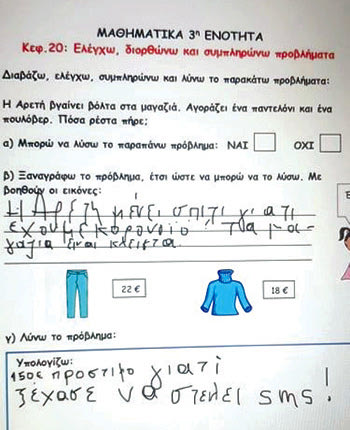 ΜΑΘΗΜΑΤΙΚΑ 3η ΕΝΟΤΗΤΑ
Κεφ.20: Ελέγχω, διορθώνω και συμπληρώνω προβλήματα
Διαβάζω, ελέγχω, συμπληρώνω και λύνω το παρακάτω προβλήματα:
Η Αρετή βγαίνει βόλτα στα μαγαζιά. Αγοράζει ένα παντελόνι και ένα
πουλόβερ. Πόσα ρέστα πήρε;
α) Μπορώ να λύσω το παραπάνω πρόβλημα: ΝΑΙ ΟΧΙ
β) Ξαναγράφω το πρόβλημα, έτσι ώστε να μπορώ να το λύσω. Με
βοηθούν οι εικόνες:
Η Αρετή μένει σπίτι γιατί
έχουμε κορονοϊό. Τα μα-
γαζια είναι κλειστα.
22 €
18 €
γ) Λύνω το πρόβλημα:
Υπολογίζω:
150€ προστιμο γιατί
ξέχασε να στείλει sms!